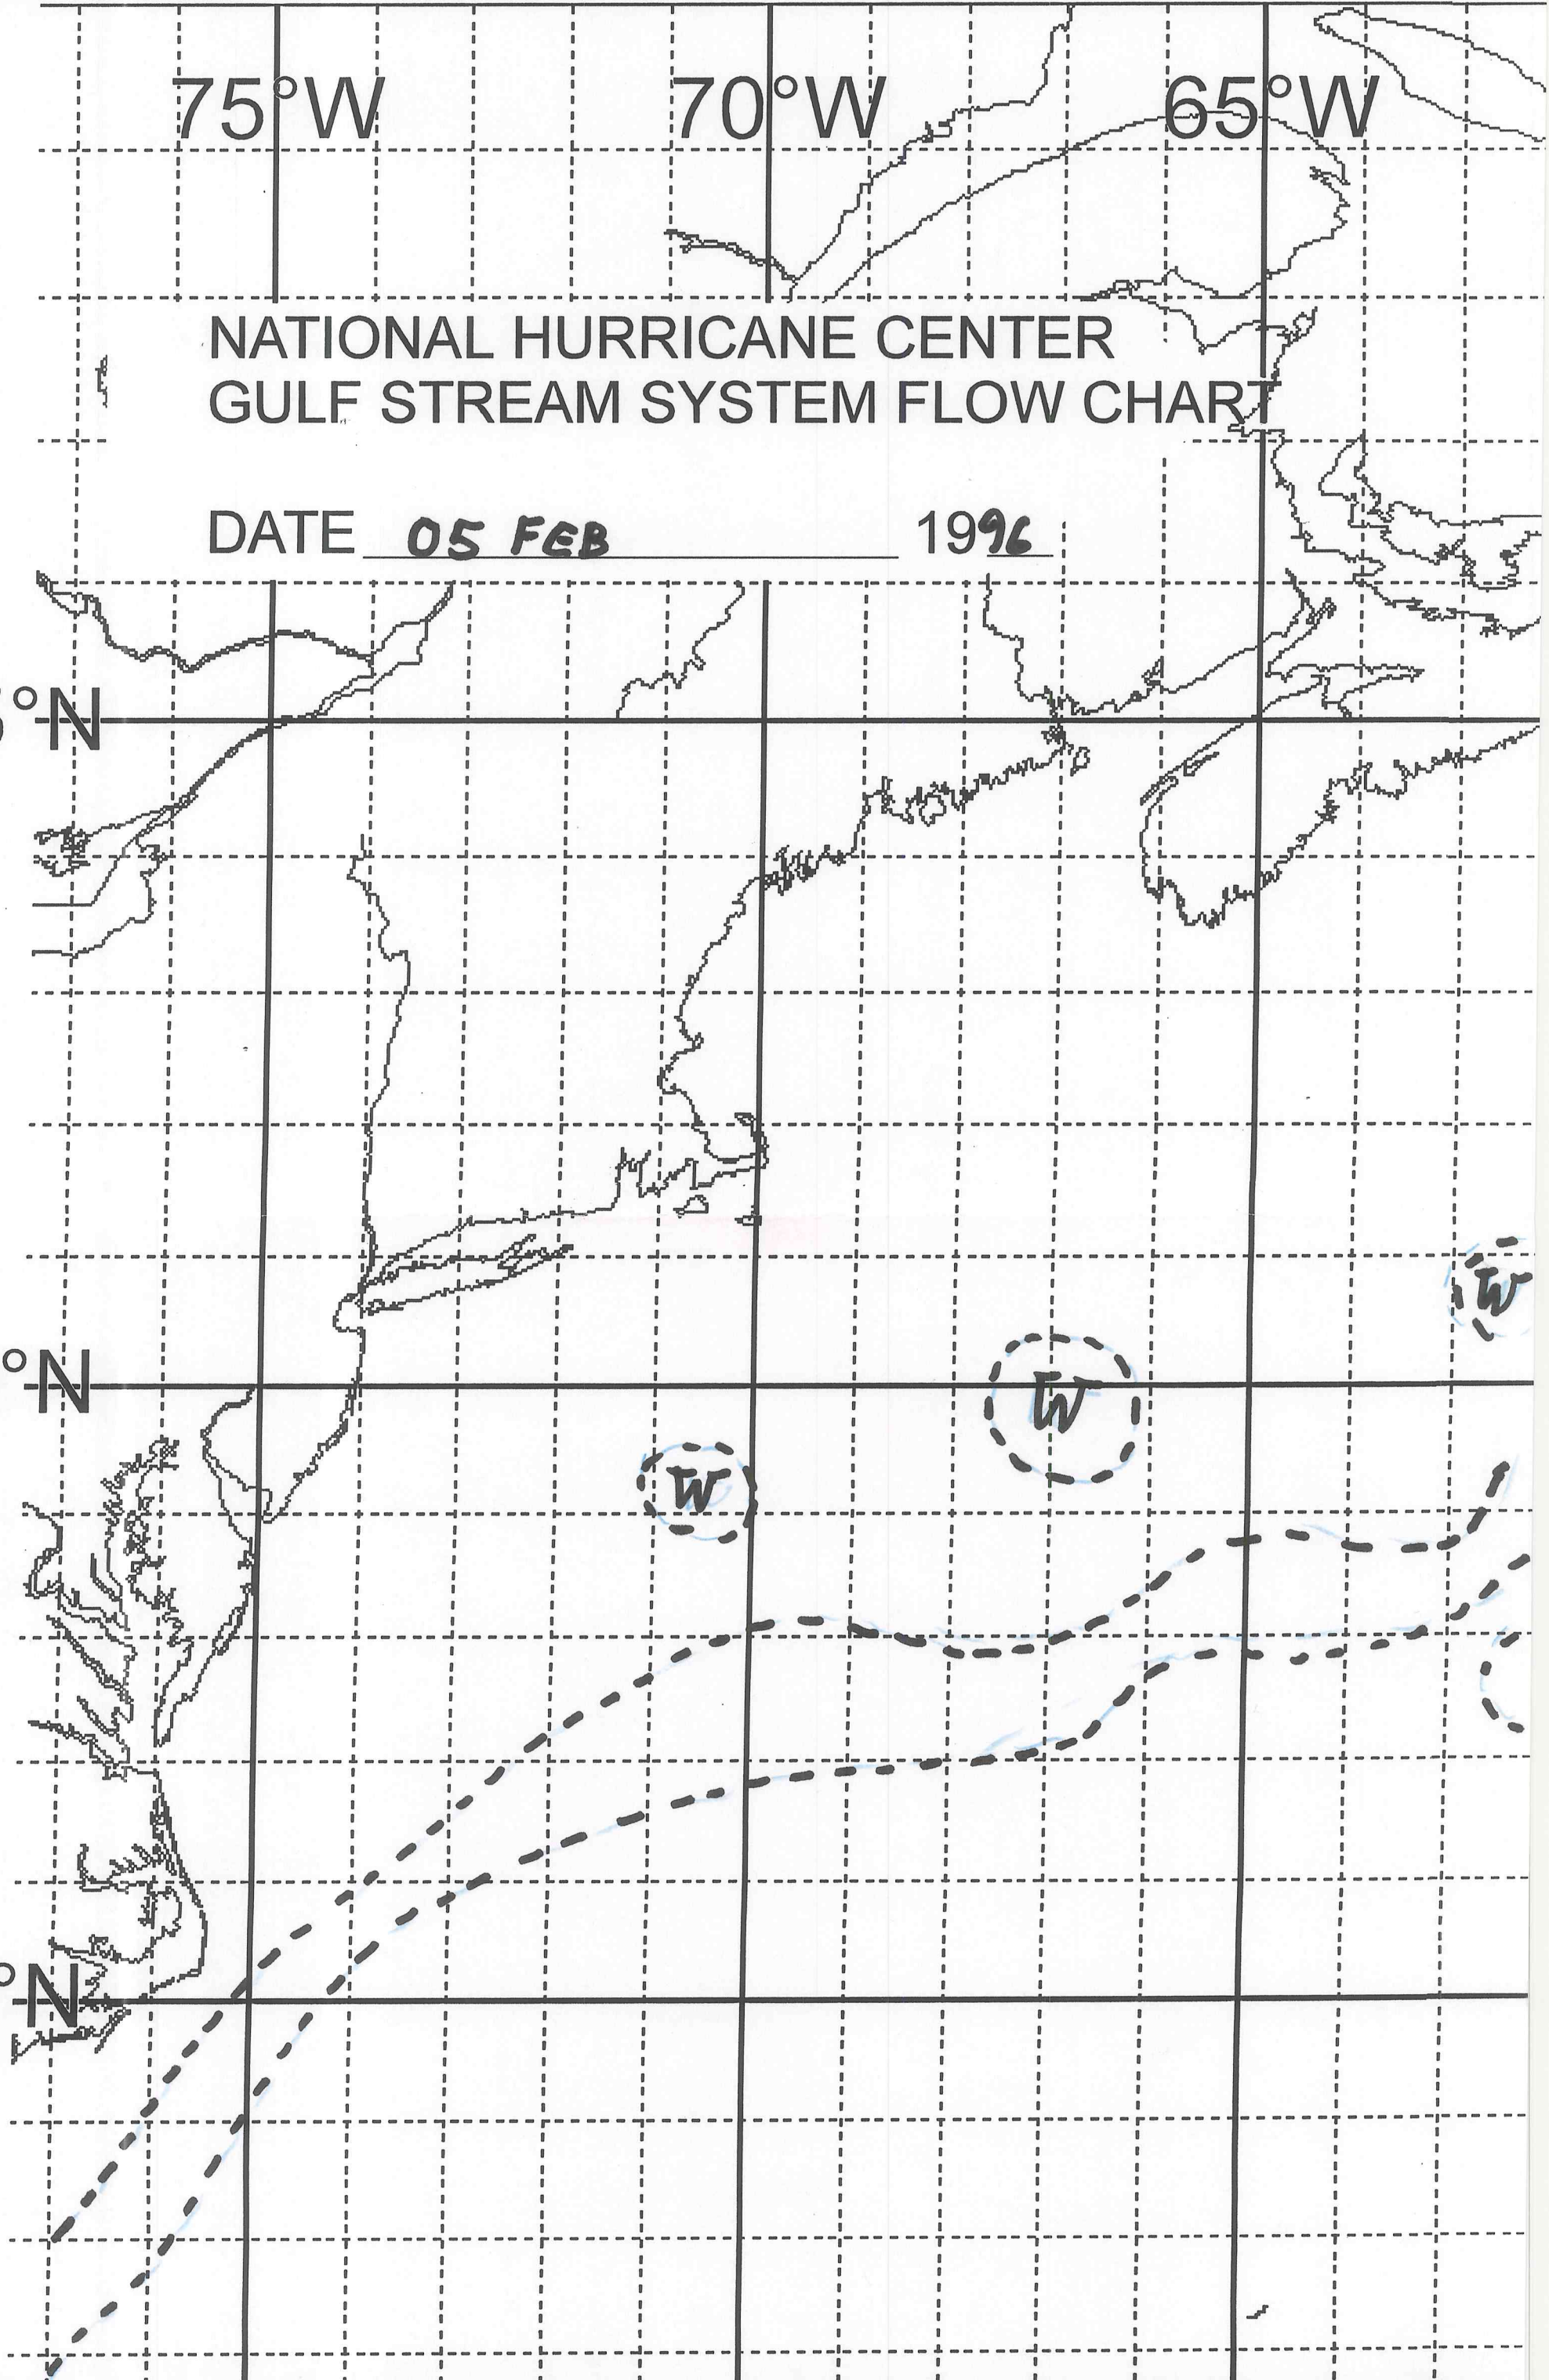 75°W 70°W 65°W
NATIONAL HURRICANE CENTER
GULF STREAM SYSTEM FLOW CHART
DATE 05 FEB 1996
°N
W
°N
W
W
°N